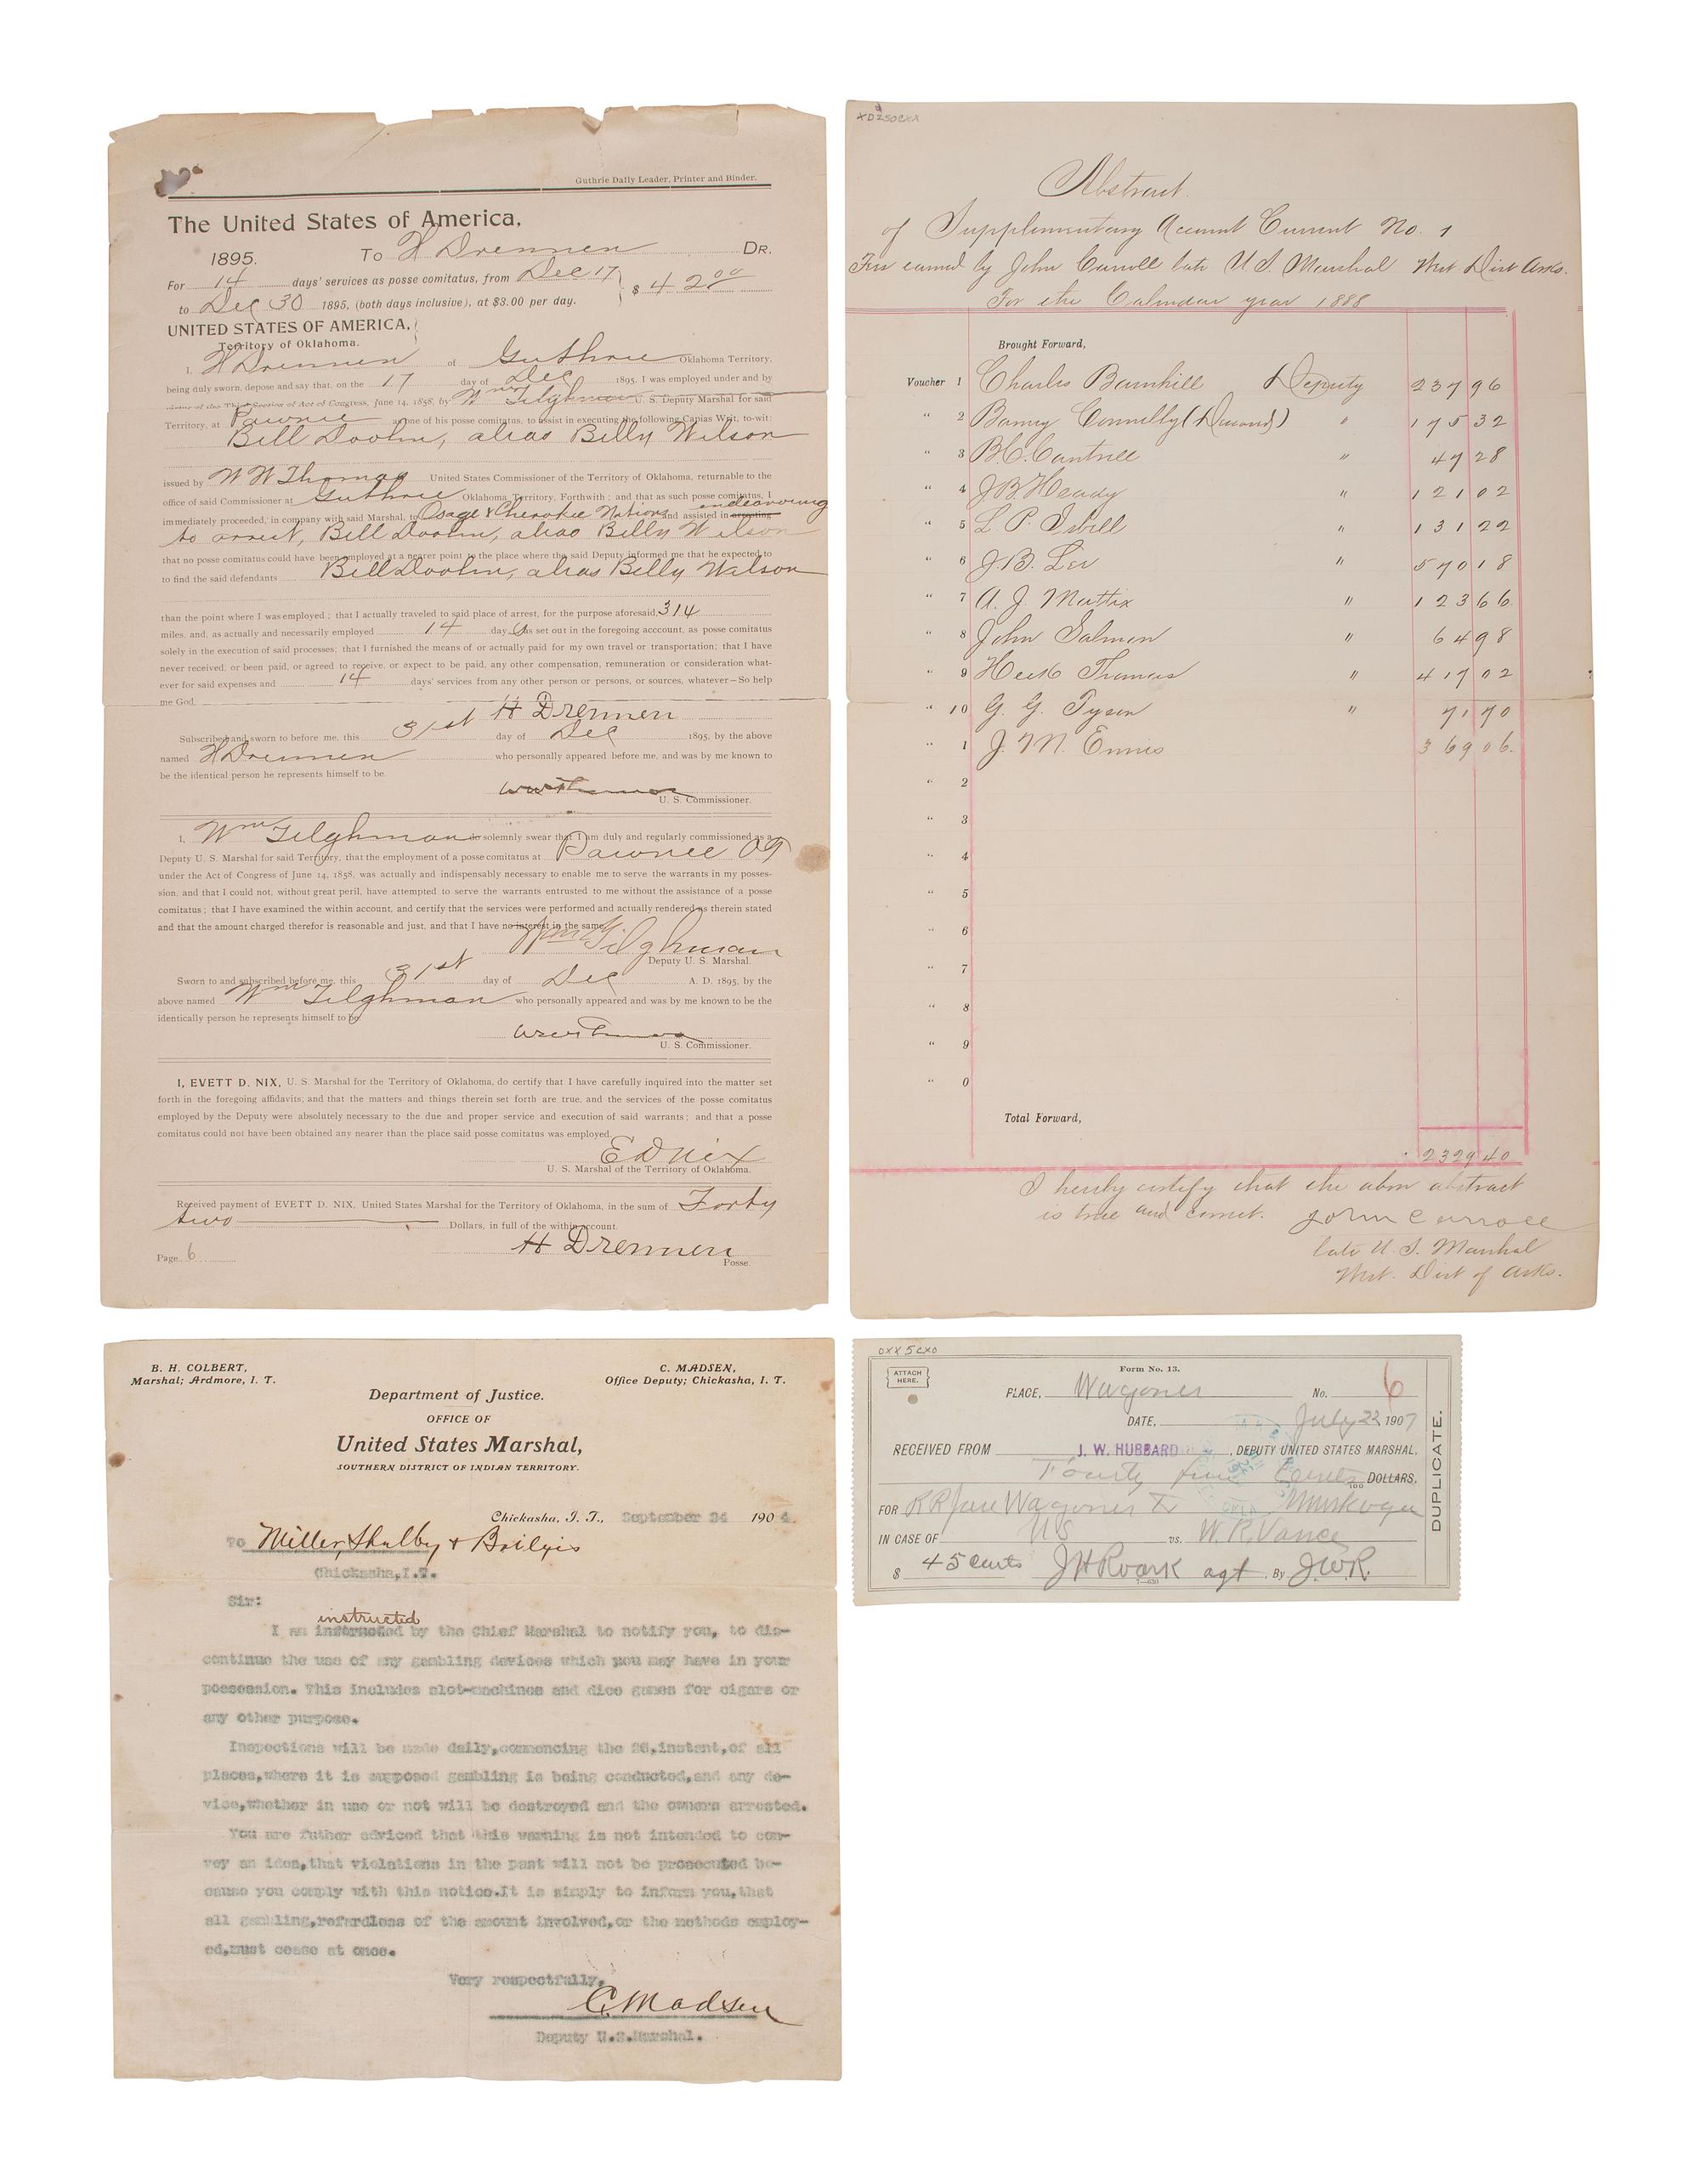 Guthrie Daily Leader, Printer and Binder.
The United States of America,
1895. To H Drennen DR.
For 14 days' services as posse comitatus, from Dec 17
to Dec 30 1895, (both days inclusive), at $3.00 per day. $ 42 00
UNITED STATES OF AMERICA,
Territory of Oklahoma.
I, H Drennen of Guthrie Oklahoma Territory,
being duly sworn, depose and say that, on the 17 day of Dec 1895, I was employed under and by
virtue of the Third Section of Act of Congress, June 14, 1858, by Wm Tilghman U. S. Deputy Marshal for said
Territory, at Pawnee as one of his posse comitatus, to assist in executing the following Capias Writ, to-wit:
Bill Doolin, alias Billy Wilson
issued by W W Thomas United States Commissioner of the Territory of Oklahoma, returnable to the
office of said Commissioner at Guthrie Oklahoma Territory, Forthwith; and that as such posse comitatus, I
immediately proceeded, in company with said Marshal, to Osage & Cherokee Nations and assisted in arresting endeavoring
to arrest, Bill Doolin, alias Billy Wilson
that no posse comitatus could have been employed at a nearer point to the place where the said Deputy informed me that he expected to
to find the said defendants Bill Doolin, alias Billy Wilson
than the point where I was employed; that I actually traveled to said place of arrest, for the purpose aforesaid, 314
miles, and, as actually and necessarily employed 14 days as set out in the foregoing acccount, as posse comitatus
solely in the execution of said processes; that I furnished the means of or actually paid for my own travel or transportation; that I have
never received, or been paid, or agreed to receive, or expect to be paid, any other compensation, remuneration or consideration what-
ever for said expenses and 14 days' services from any other person or persons, or sources, whatever—So help
me God.
H Drennen
Subscribed and sworn to before me, this 31st day of Dec 1895, by the above
named H Drennen who personally appeared before me, and was by me known to
be the identical person he represents himself to be.
W W Thomas
U. S. Commissioner.
I, Wm Tilghman do solemnly swear that I am duly and regularly commissioned as a
Deputy U. S. Marshal for said Territory, that the employment of a posse comitatus at Pawnee OT
under the Act of Congress of June 14, 1858, was actually and indispensably necessary to enable me to serve the warrants in my posses-
sion, and that I could not, without great peril, have attempted to serve the warrants entrusted to me without the assistance of a posse
comitatus; that I have examined the within account, and certify that the services were performed and actually rendered as therein stated
and that the amount charged therefor is reasonable and just, and that I have no interest in the same.
Wm Tilghman
Deputy U. S. Marshal.
Sworn to and subscribed before me, this 31st day of Dec A. D. 1895, by the
above named Wm Tilghman who personally appeared and was by me known to be the
identically person he represents himself to be.
W W Thomas
U. S. Commissioner.
I, EVETT D. NIX, U. S. Marshal for the Territory of Oklahoma, do certify that I have carefully inquired into the matter set
forth in the foregoing affidavits; and that the matters and things therein set forth are true, and the services of the posse comitatus
employed by the Deputy were absolutely necessary to the due and proper service and execution of said warrants; and that a posse
comitatus could not have been obtained any nearer than the place said posse comitatus was employed.
E D Nix
U. S. Marshal of the Territory of Oklahoma.
Received payment of EVETT D. NIX, United States Marshal for the Territory of Oklahoma, in the sum of Forty
two Dollars, in full of the within account.
H Drennen
Posse.
Page 6
Abstract
of Supplementary Account Current No. 1
Fees earned by John Carroll late U S. Marshal West Dist Arks.
For the Calendar year 1888
Brought Forward,
Voucher 1 Charles Barnhill Deputy 237 96
" 2 Barney Connelly (Deceased) " 175 32
" 3 B.C. Cantrell " 47 28
" 4 J B Heady " 121 02
" 5 L. P. Isbell " 131 22
" 6 J. B. Lee " 570 18
" 7 A. J. Mattix " 123 66
" 8 John Salmon " 64 98
" 9 Heck Thomas " 417 02
" 10 G. G. Tyson " 71 70
" 1 J. M. Ennis 369 06
" 2
" 3
" 4
" 5
" 6
" 7
" 8
" 9
" 0
Total Forward,
2329 40
I hereby certify that the above abstract
is true and correct. John Carroll
late U. S. Marshal
West. Dist of Arks.
B. H. COLBERT,
Marshal; Ardmore, I. T.
C. MADSEN,
Office Deputy; Chickasha, I. T.
Department of Justice.
OFFICE OF
United States Marshal,
SOUTHERN DISTRICT OF INDIAN TERRITORY.
Chickasha, I. T., September 24 1904.
To Miller, Shulby &
Chickasha,I.T.
Sir:
instructed
I am instructed by the Chief Marshal to notify you, to dis-
continue the use of any gambling devices which you may have in your
possession. This includes slot-machines and dice games for cigars or
any other purpose.
Inspections will be made daily,commencing the 26,instant,of all
places,where it is supposed gambling is being conducted,and any de-
vice,whether in use or not will be destroyed and the owners arrested.
You are futher adviced that this warning is not intended to con-
vey an idea,that violations in the past will not be prosecuted be-
cause you comply with this notice.It is simply to inform you,that
all gambling,refardless of the amount involved,or the methods employ-
ed,must cease at once.
Very respectfully,
C Madsen
Deputy U.S.Marshal.
0XX5CX0
ATTACH
HERE.
Form No. 13.
PLACE, Wagoner No. 6
DATE, July 22 1907
RECEIVED FROM J. W. HUBBARD , DEPUTY UNITED STATES MARSHAL,
Fourty five Cents 100 DOLLARS,
FOR R R fare Wagoner to Muskogee
IN CASE OF US vs. W. R. Vance
$ 45 cents J H Roark agt , By J.W.R.
DUPLICATE.